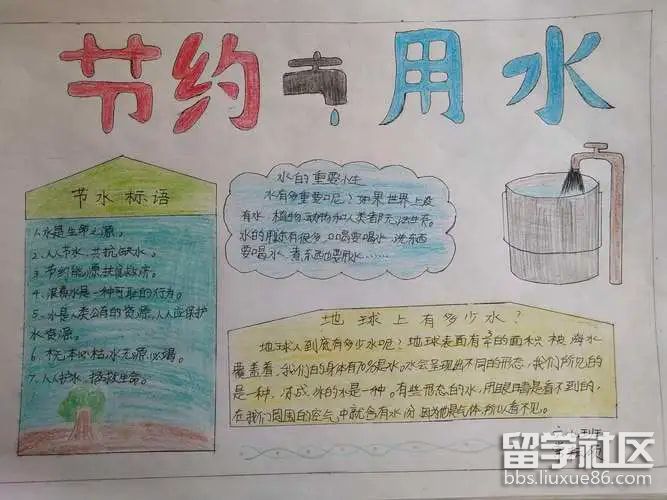 节约用水
节水标语
1.水是生命之源。
2.人人节水,共抗缺水。
3.节约能源
4.浪费水是一种可耻的行为。
5.水是人类公有的资源,人人应保护
水资源。
6.木无本必枯,水无源必竭。
7.人人护水,拯救生命。
水的重要性
水有多重要呢?如果世界上没
有水,植物、动物和人类都无法生存。
水的用途有很多,口喝要喝水,洗东西
要喝水,煮东西也要用水……
地球上有多少水?
地球人到底有多少水呢?地球表面有
的面积被海水
覆盖着,我们的身体有70%是水。水会呈现出不同的形态,我们所见的
是一种,冻成冰的水是一种。有些形态的水,用眼睛是看不到的,
在我们周围的空气中就含有水份,因为他是气体,所以看不见。
留学社区
bbs.liuxue86.com